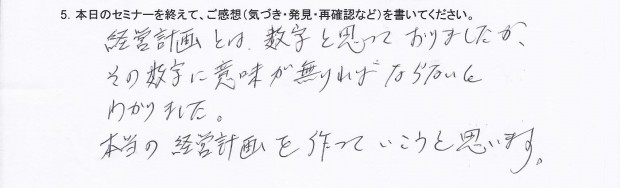 5. 本日のセミナーを終えて、ご感想（気づき・発見・再確認など）を書いてください。
経営計画とは、数字と思っておりましたが、
その数字に意味が無ければならないと
わかりました。
本当の経営計画を作っていこうと思います。